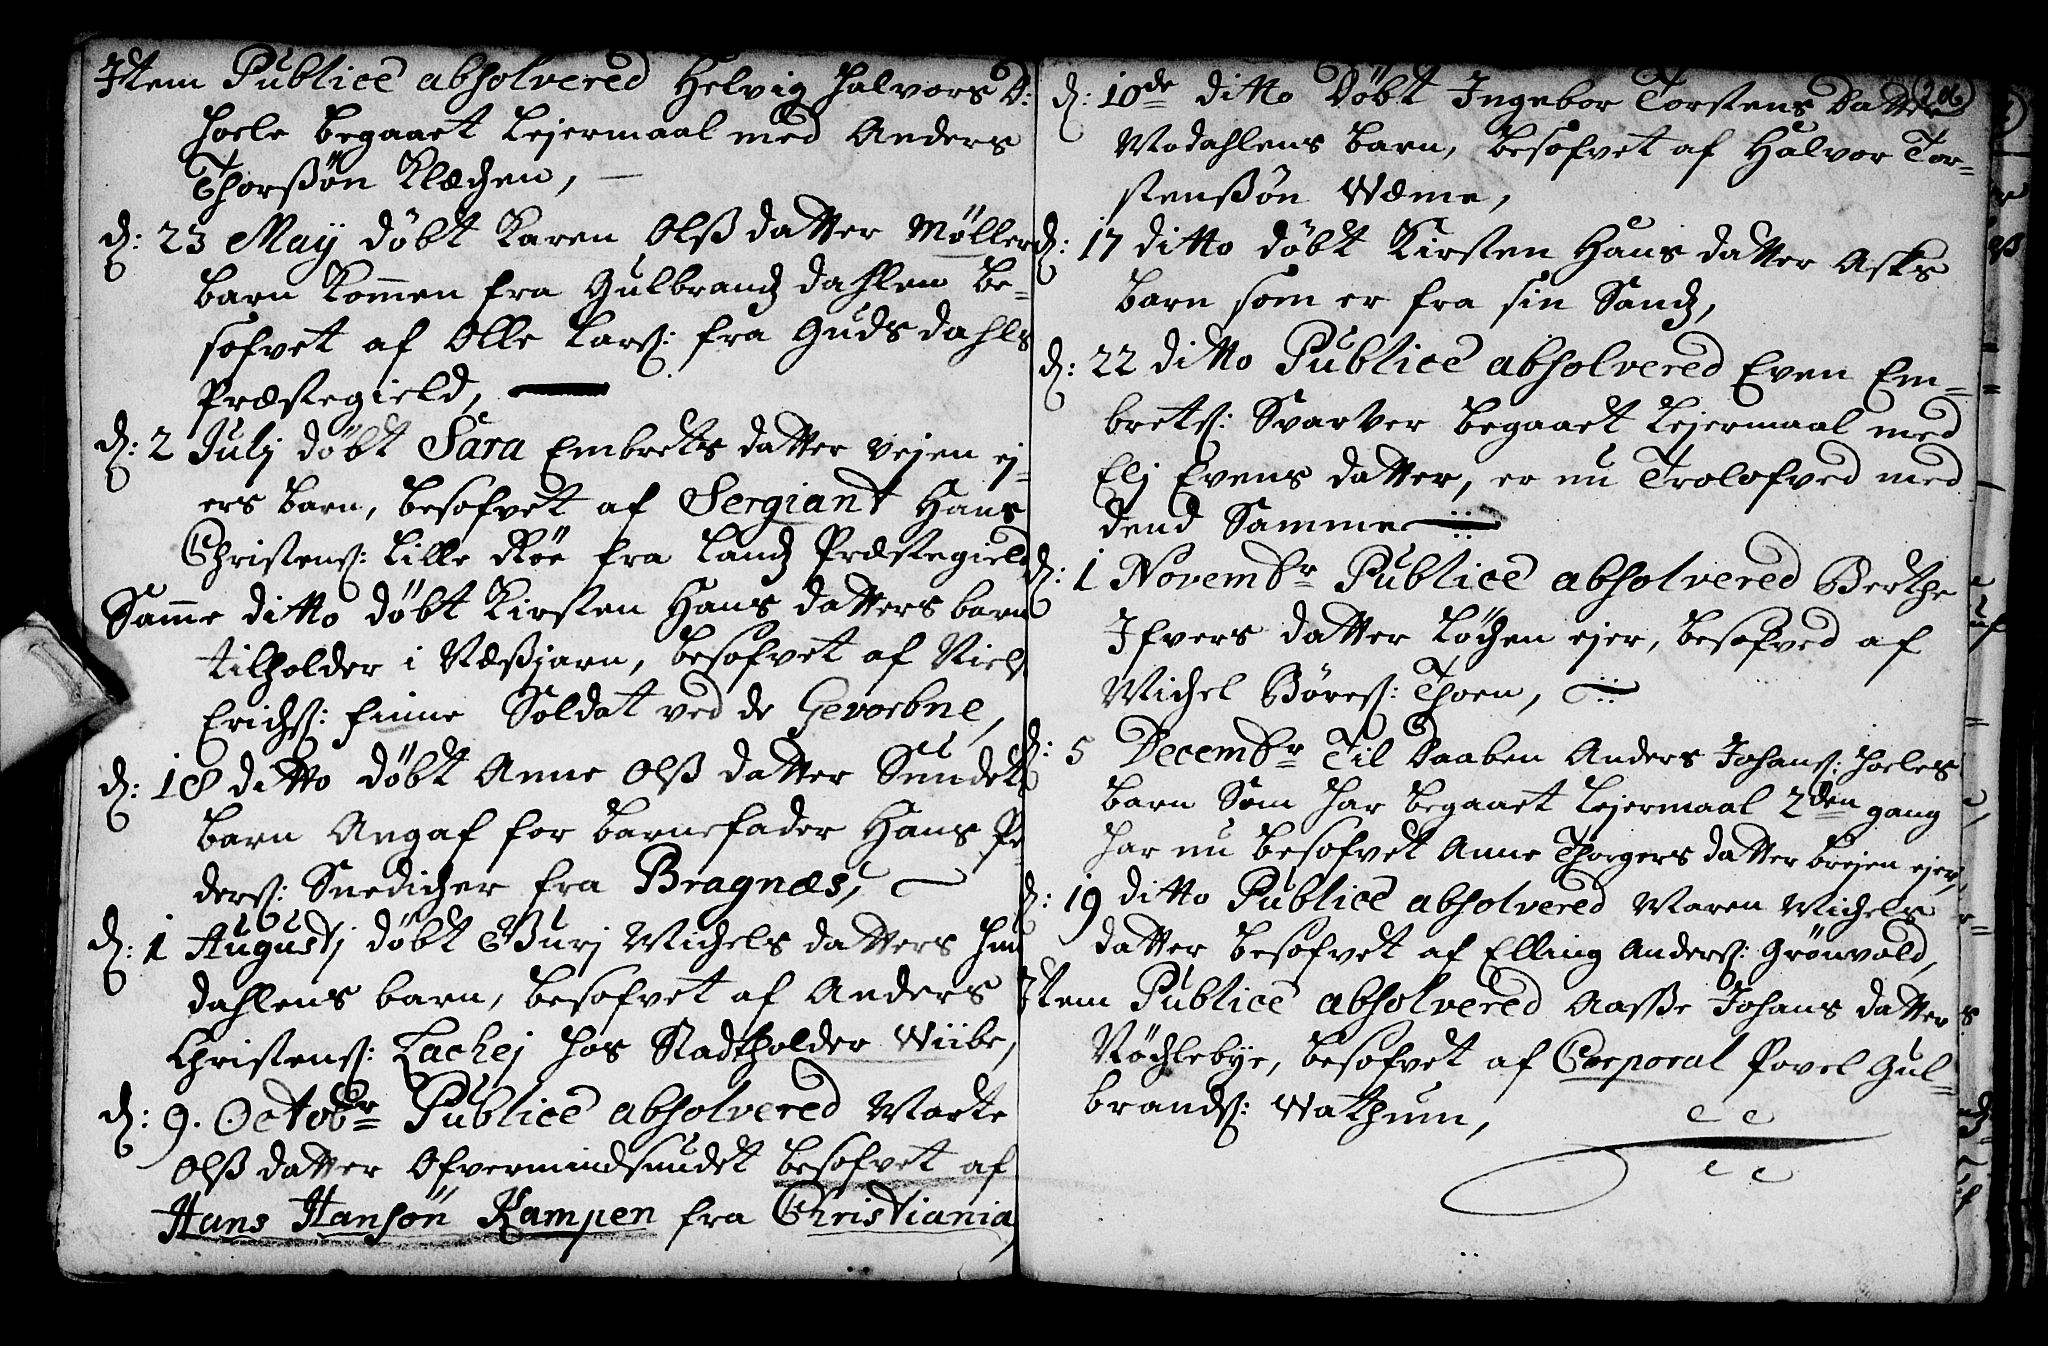 Item Publicè absolvered Helvig Halvors D:
Hoele begaaet Lejermaal med Anders
Thorßön Klæchen, —
d: 23 May döbt Karen Olß datter Møller
barn kommen fra Gulbrandsdahlen be-
sofvet af Olle Larß: fra Gudsdahls
Præstegield,
d: 2 Julj döbt Sara Embrets datter Vejen ej-
ers barn, besofvet af Sergiant Hans
Christenß: Lille Röe fra Landz Præstegield
Samme ditto döbt Kirsten Hans datters barn
tilholder i Næßjarn, besofvet af Niels
Erichß: finne Soldat ved de Gevorbne,
d: 18 ditto döbt Anne Olß datter Sundets
barn Angaf for barnefader Hans Pe
derß: Snedicher fra Bragnæs,
d: 1 Augustj döbt Burj Michels datters Hun
dahlens barn, besofvet af Anders
Christenß: Lachej hos Stadtholder Wiibe,
d: 9. Octobr Publicè absolvered Marte
Olß datter Ofvermindsundet besofvet af
Hans Hansön Kampen fra Christiania,
206
d: 10de ditto döbt Ingebor Torstens datter
Modahlens barn, besofvet af Halvor Tor-
stensßön Wæme,
d: 17 ditto döbt Kirsten Hans datter Asks
barn som er fra sin Sandz,
d: 22 ditto Publicè absolvered Even Em-
bretß: Svartver begaaet Lejermaal med
Elj Evens datter, er nu Trolofved med
dend Samme
d: 1 Novembr Publicè absolvered Berthe
Ifvers datter Löchen ejer, besofved af
Michel Böreß: Thoen,
d: 5 Decembr Til Daaben Anders Johanß: Hoeles
barn Som har begaaet Lejermaal 2den gang
har nu besofvet Anne Thorgers datter brejen ejer,
d: 19 ditto Publicè absolvered Maren Michels
datter besofvet af Elling Anderß: Grönvold,
Item Publicè absolvered Aasße Johans datter
Nöchlebye, besofvet af Corporal Povel Gul-
brandß: Wathum,